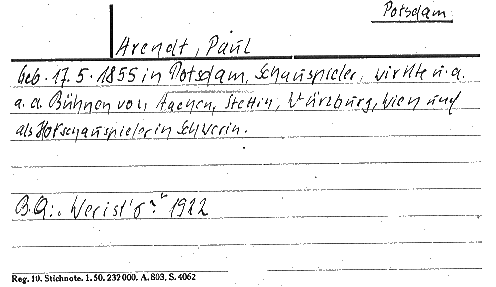 Potsdam
Arendt, Paul
geb. 17.5.1855 in Potsdam, Schauspieler, wirkte u.a.
a.d. Bühnen von Aachen, Stettin, Würzburg, Wien und
als Hofschauspieler in Schwerin.
B.Q.: „Wer ist's?" 1922
Reg. 10. Stichnote. 1. 50. 232 000. A. 803, S. 4062